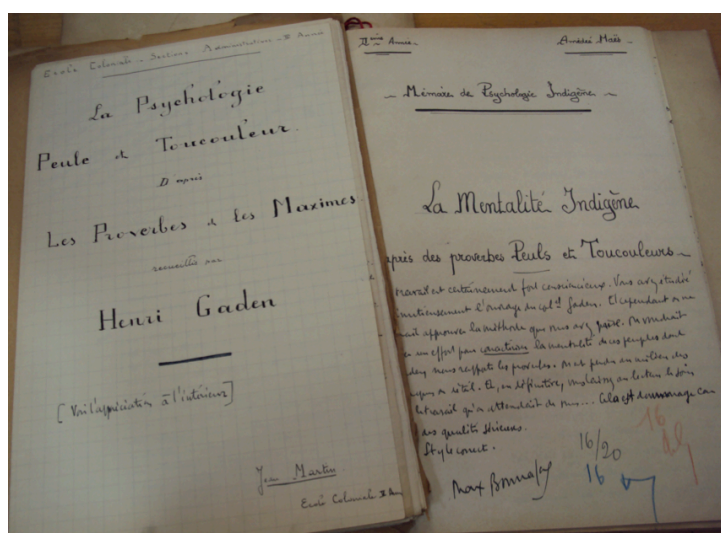 Ecole Coloniale - Sections Administratives - II Année
La Psychologie
Peule et Toucouleur
D'après
Les Proverbes et les Maximes
recueillis par
Henri Gaden
[Voir l'appréciation à l'intérieur]
Jean Martin
Ecole Coloniale II
IIème Année
Amédée Maës
Mémoire de Psychologie Indigène
La Mentalité Indigène
après des proverbes Peuls et Toucouleurs
travail est certainement fort consciencieux. Vous avez étudié
minutieusement l'ouvrage du col. Gaden. Et cependant on ne
approuver la méthode que vous avez On voudrait
un effort pour la mentalité de ces peuples dont
Gaden nous rapporte les proverbes. On se perd au milieu des
détail. Et, en définitive, vous laissez au lecteur le soin
le travail qu'on attendait de vous... Cela est dommage car
des qualités sérieuses.
Style correct.
16/20
16
16